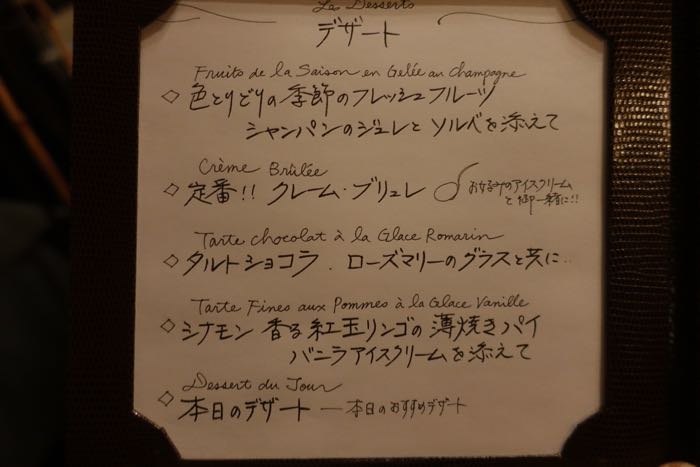 Les Desserts
デザート
Fruits de la Saison en Gelée au Champagne
◇ 色とりどりの季節のフレッシュフルーツ
シャンパンのジュレとソルベを添えて
Crème Brûlée
◇ 定番!! クレーム・ブリュレ
お好みのアイスクリーム
と御一緒に!!
Tarte chocolat à la Glace Romarin
◇ タルトショコラ. ローズマリーのグラスと共に..
Tarte Fines aux Pommes à la Glace Vanille
◇ シナモン香る紅玉リンゴの薄焼きパイ
バニラアイスクリームを添えて
Dessert du Jour
◇ 本日のデザート ― 本日のおすすめデザート